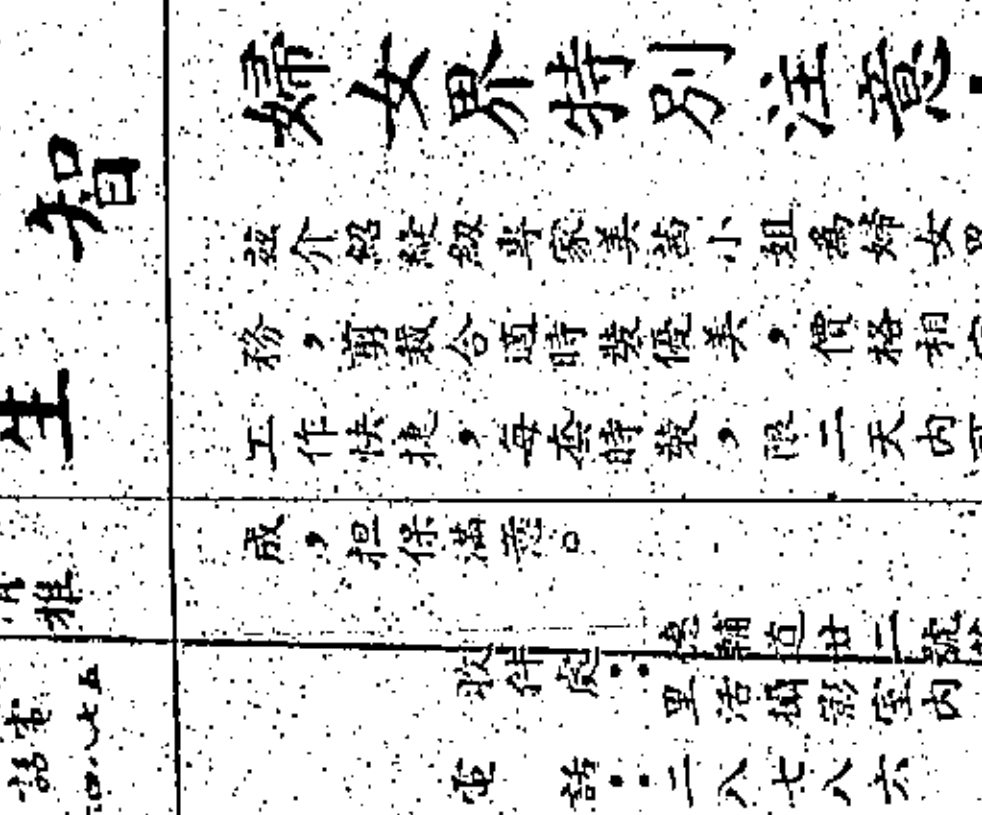 婦女界特別注意・
茲介紹縫級專家美茜小姐為婦女界
務，剪裁合適時裝優美，價格相宜
工作快捷，每套時裝，限二天内可
成，担保滿意。
收件處：德輔道廿二號
里活攝影室内
電話：二八七八六
智
生
雅
電話